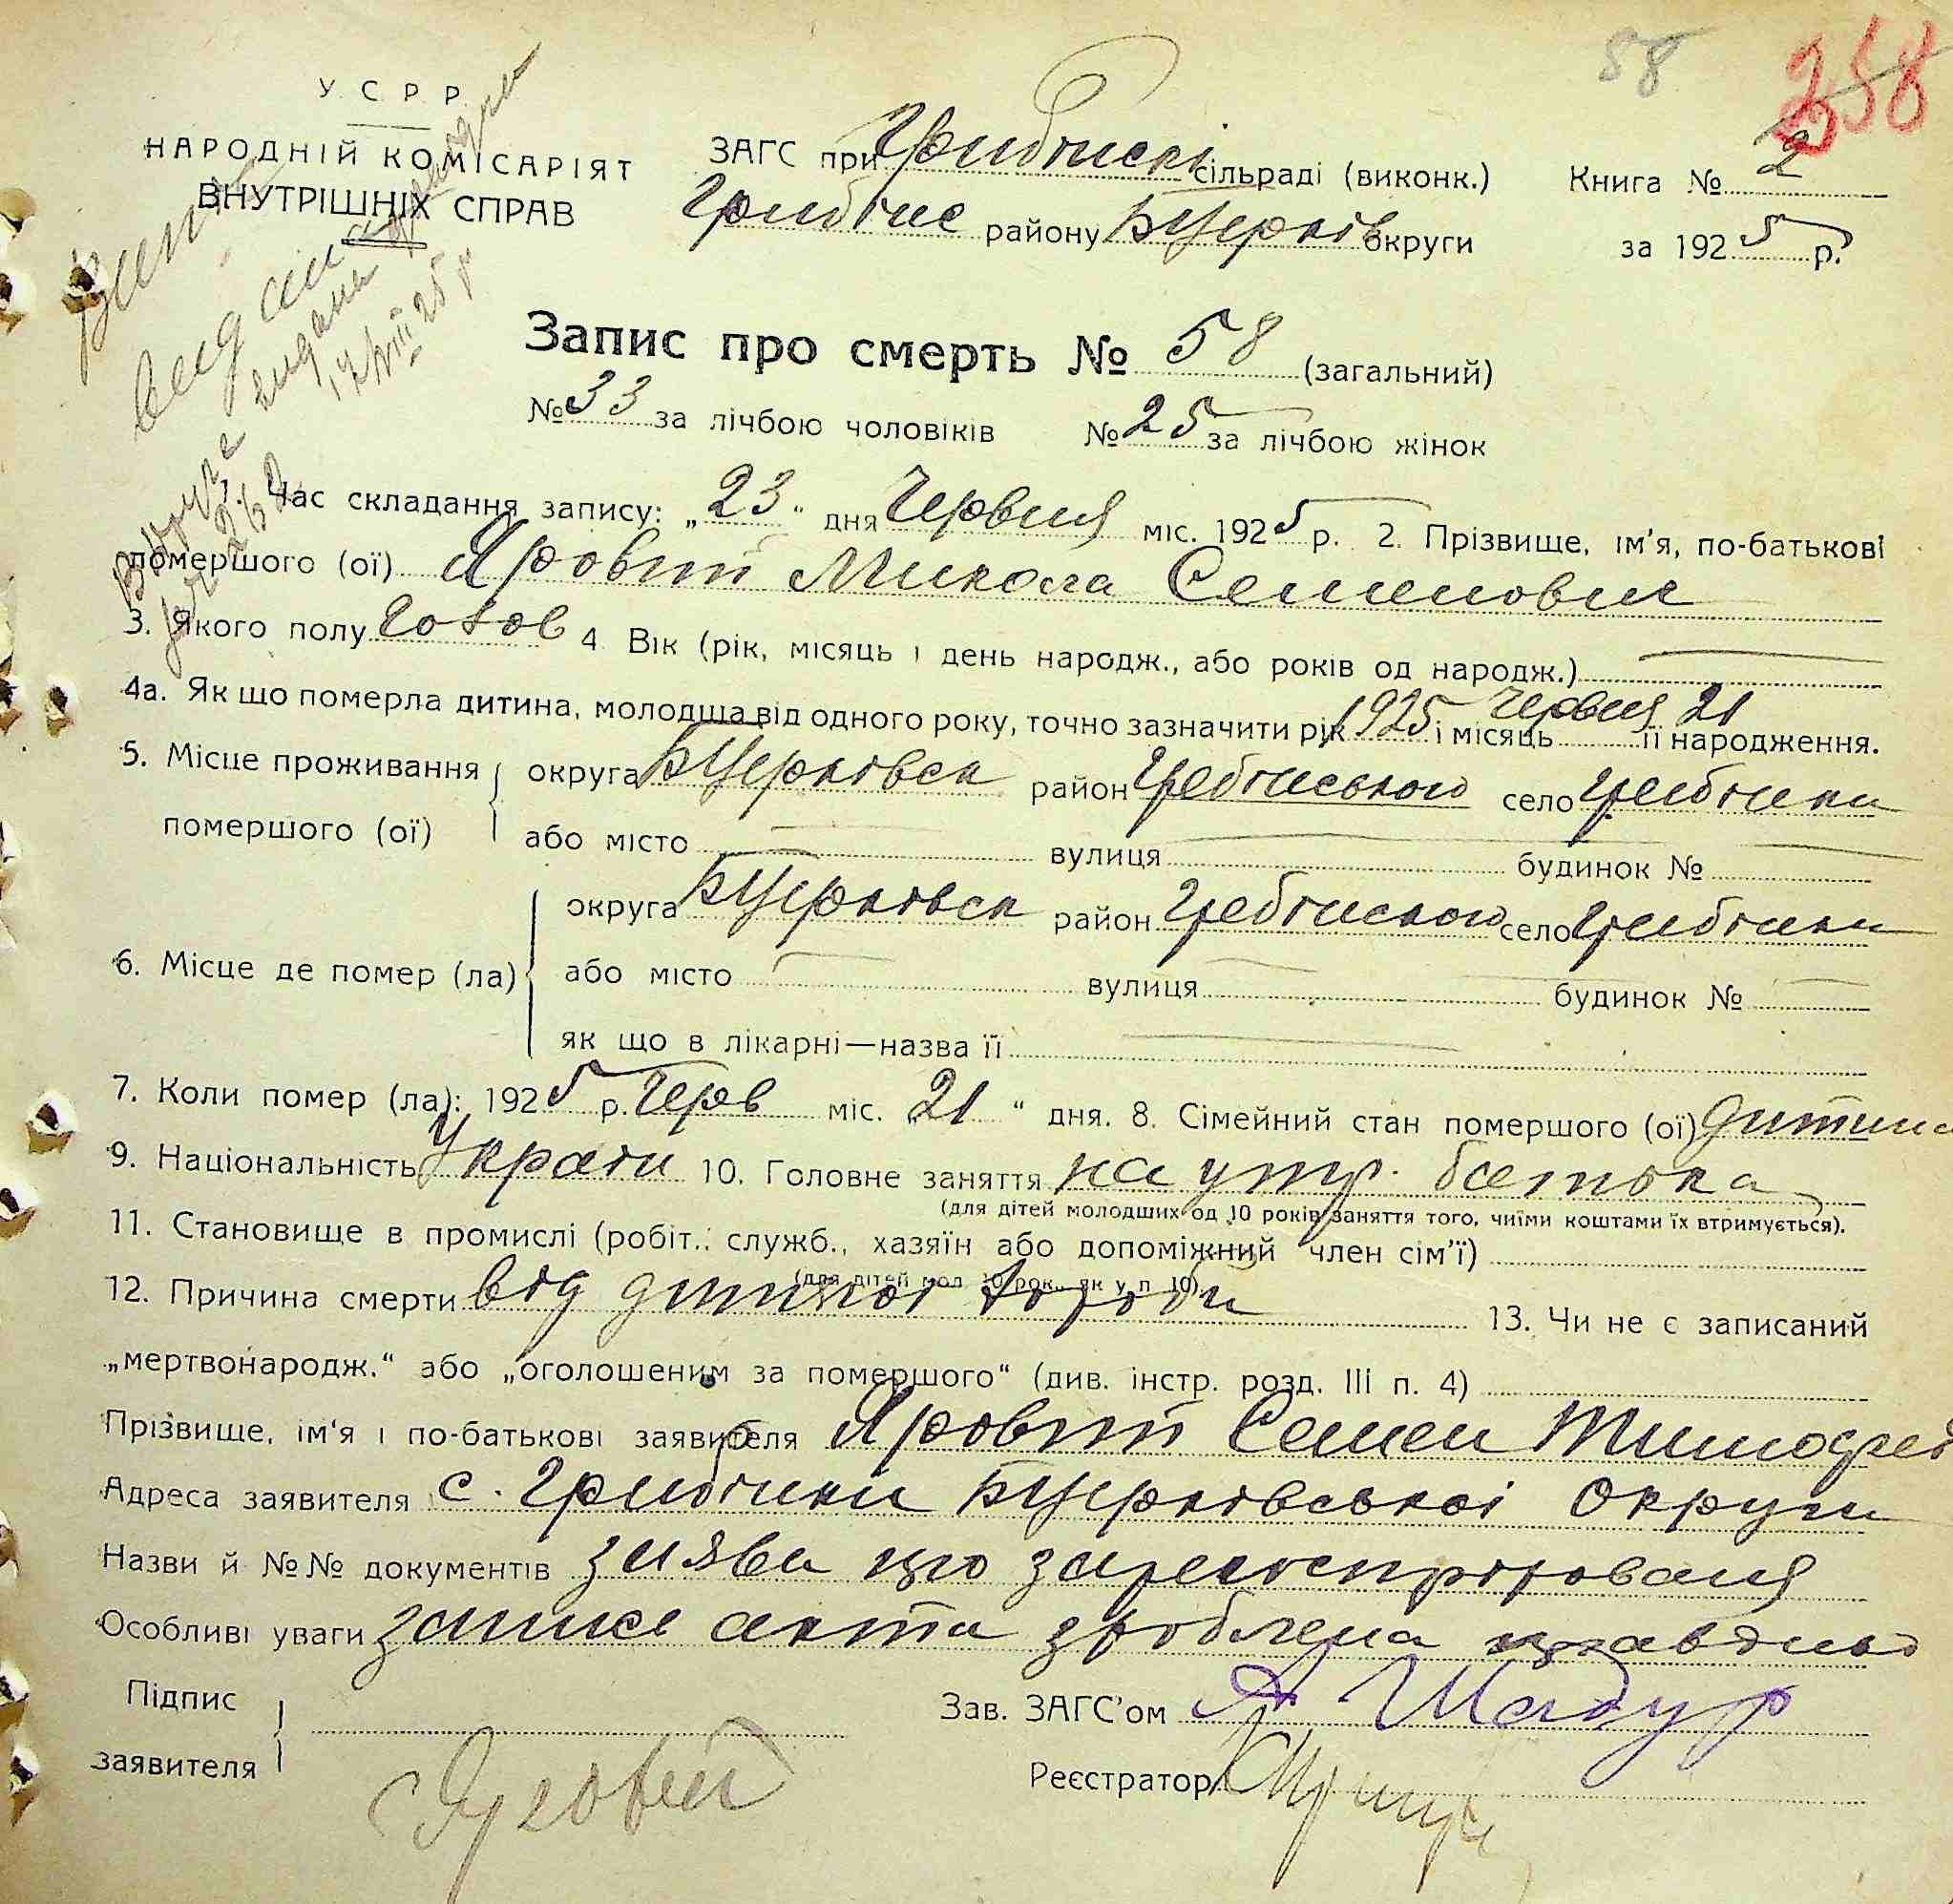 58
258
У. С. Р. Р.
НАРОДНІЙ КОМІСАРІЯТ
ВНУТРІШНІХ СПРАВ
ЗАГС при сільраді (виконк.) Книга № 2
району БЦерків округи за 1925 р.
17/VIII 25 р
Запис про смерть № 58 (загальний)
№ 33 за лічбою чоловіків № 25 за лічбою жінок
Час складання запису: „23“ дня Червня міс. 1925 р. 2. Прізвище, ім'я, по-батькові
помершого (ої) Яровий Микола Семенович
3. Якого полу чолов 4 Вік (рік, місяць і день народж., або років од народж.)
4а. Як що померла дитина, молодша від одного року, точно зазначити рік 1925 і місяць Червня 21 її народження.
5. Місце проживання округа БЦерковск район Гребінського село Гребінки
помершого (ої) або місто вулиця будинок №
округа БЦерковск район Гребінського село Гребінки
6. Місце де помер (ла) або місто вулиця будинок №
як що в лікарні—назва її
7. Коли помер (ла): 1925 р. Черв міс. „21“ дня. 8. Сімейний стан помершого (ої) дитина
9. Національність Україн 10. Головне заняття на утр. батька
(для дітей молодших од 10 років заняття того, чиїми коштами їх втримується).
11. Становище в промислі (робіт., служб., хазяїн або допоміжний член сім'ї)
(для дітей мол. 10 рок., як у п. 10)
12. Причина смерти від дитячої хороби 13. Чи не є записаний
„мертвонародж.“ або „оголошеним за помершого“ (див. інстр. розд. III п. 4)
Прізвище, ім'я і по-батькові заявителя Яровий Семен Тимофеє
Адреса заявителя с. Гребінки БЦерківської Округи
Назви й №№ документів заява що
Особливі уваги акта зроблена
Підпис Зав. ЗАГС'ом А Шадур
заявителя Реєстратор
С Яровей